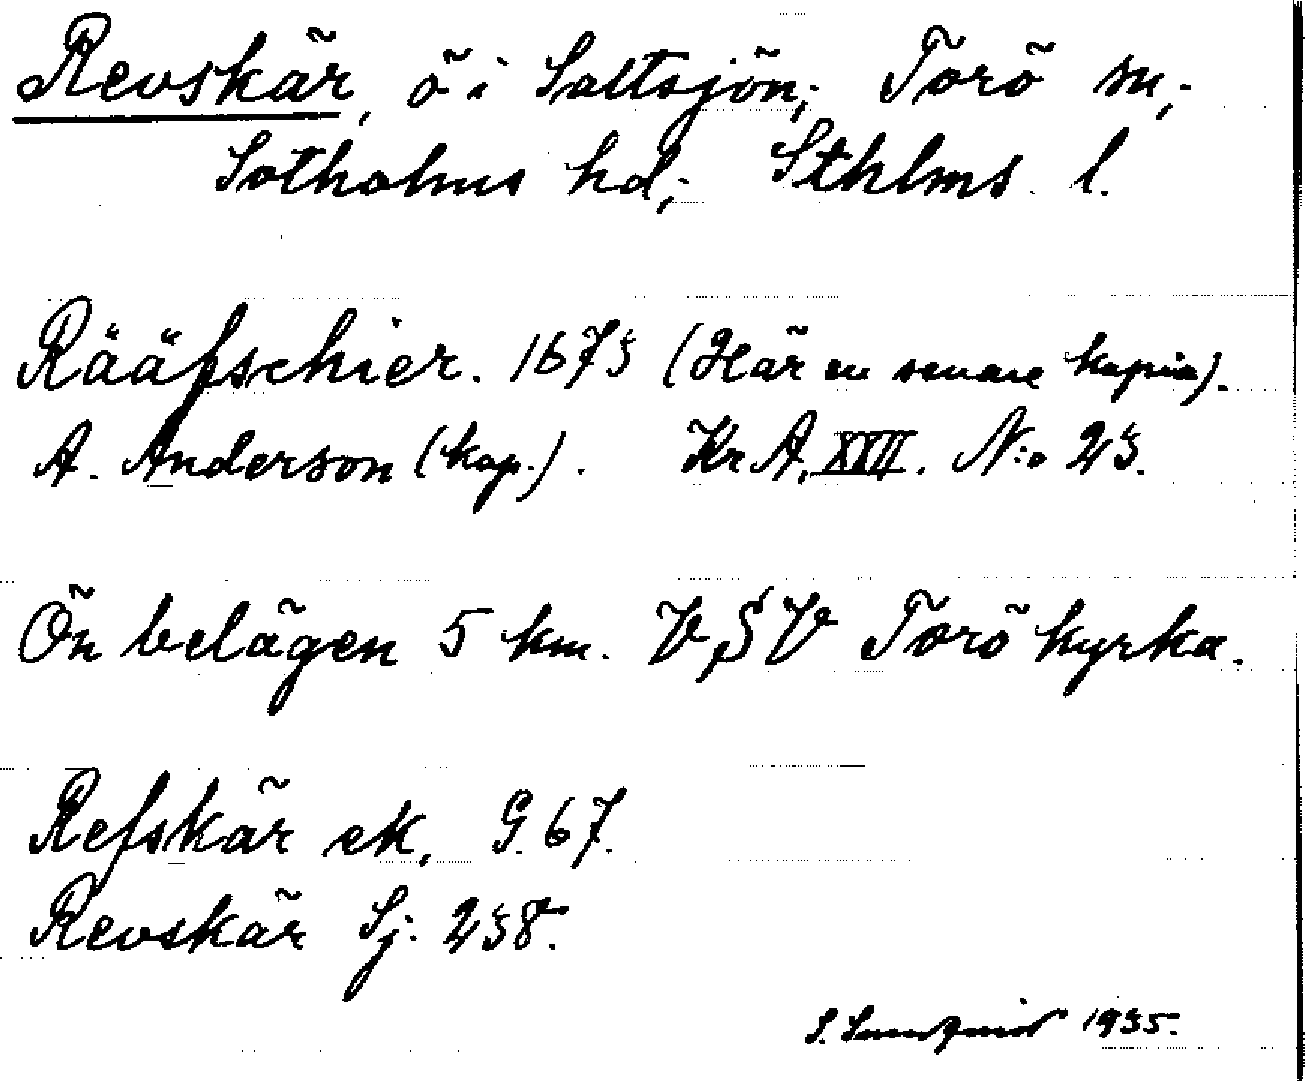 Revskär, ö i Saltsjön; Torö sn;
Sotholms hd; Sthlms l.
Rääfschier. 1673 (Här en senare kopia).
A. Anderson (kop.). Kr A. XXII. N:o 23.
Ön belägen 5 km. VSV Torö kyrka.
Refskär ek. G. 67.
Revskär Sj. 238.
S. Sundqvist 1935.